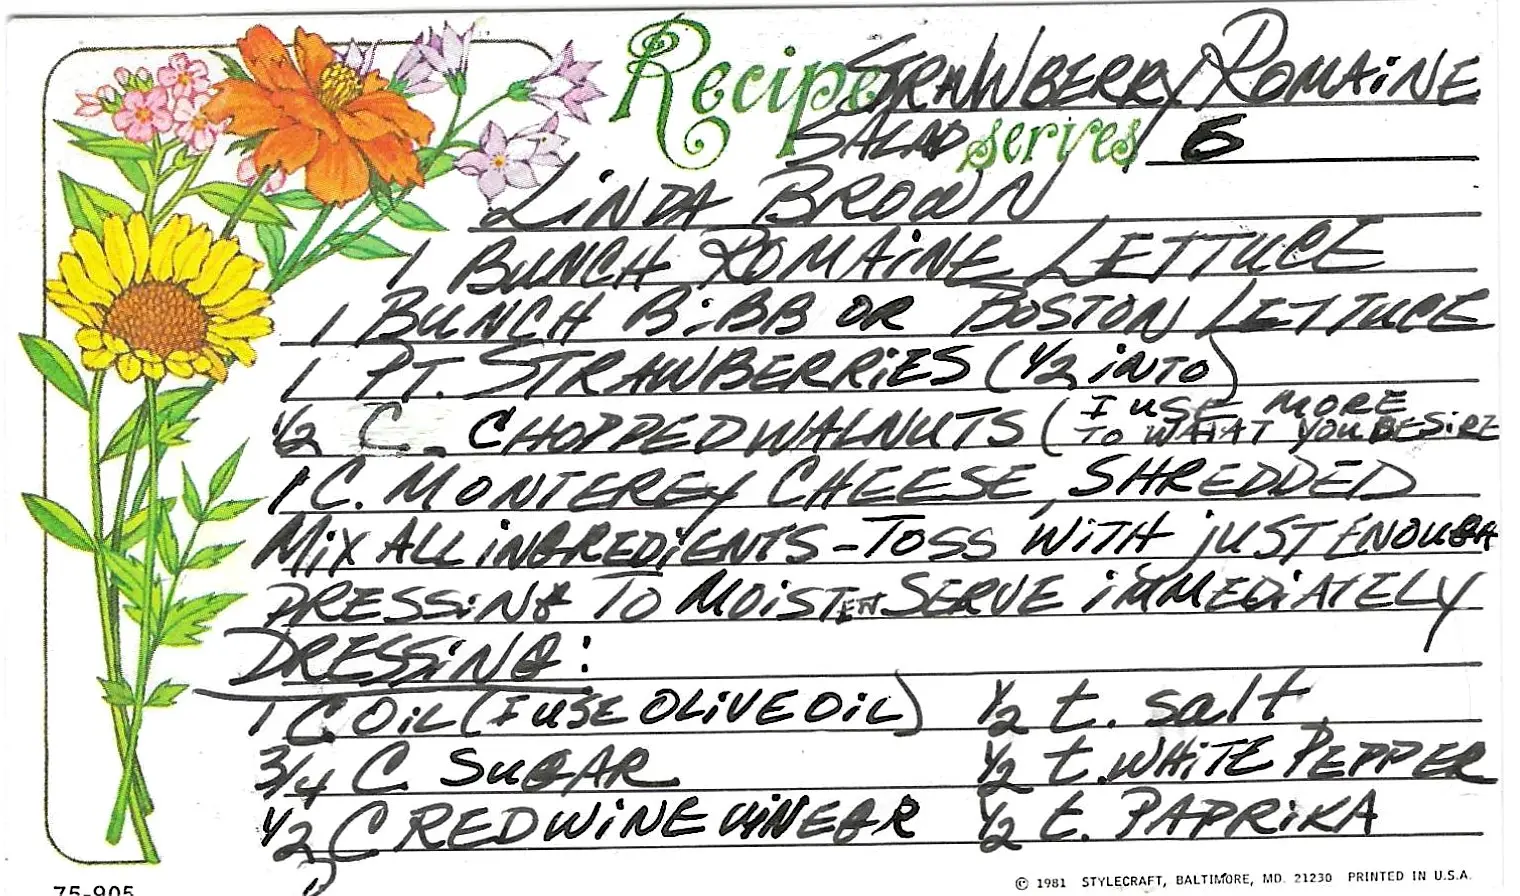 Recipe STRAWBERRY ROMAINE
SALAD serves 6
LINDA BROWN
1 BUNCH ROMAINE LETTUCE
1 BUNCH BIBB OR BOSTON LETTUCE
1 PT. STRAWBERRIES (1/2 INTO)
1/2 C. CHOPPED WALNUTS (I USE MORE
TO WHAT YOU DESIRE
1 C. MONTEREY CHEESE, SHREDDED
MIX ALL INGREDIENTS - TOSS WITH JUST ENOUGH
DRESSING TO MOISTEN SERVE IMMEDIATELY
DRESSING:
1 C OIL (I USE OLIVE OIL) 1/2 t. salt
3/4 C. SUGAR 1/2 t. WHITE PEPPER
1/2 C RED WINE VINEGR 1/2 t. PAPRIKA
75-905 © 1981 STYLECRAFT, BALTIMORE, MD. 21230 PRINTED IN U.S.A.